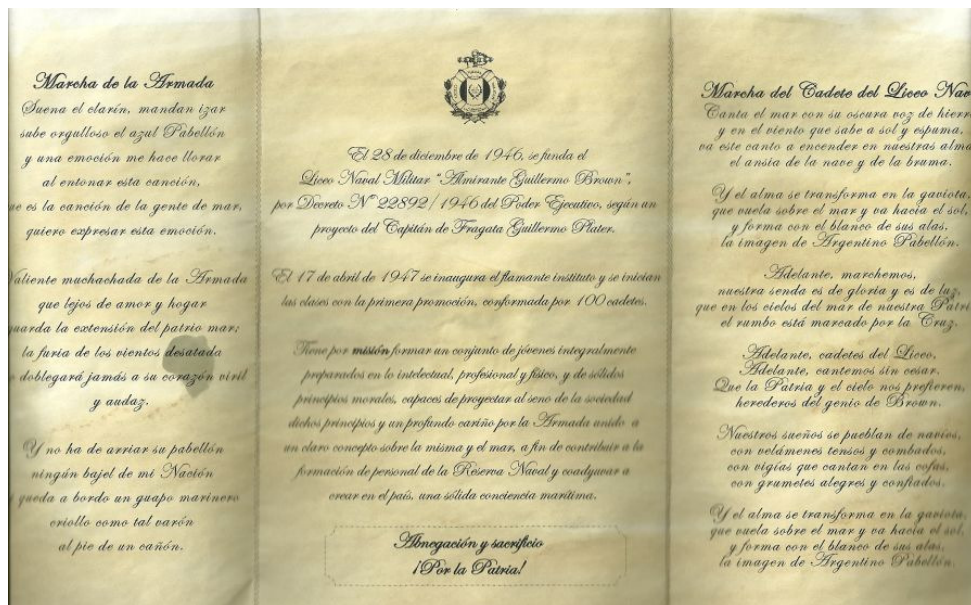 Marcha de la Armada
Suena el clarín, mandan izar
sube orgulloso el azul Pabellón
y una emoción me hace llorar
al entonar esta canción,
es la canción de la gente de mar,
quiero expresar esta emoción.
Valiente muchachada de la Armada
que lejos de amor y hogar
guarda la extensión del patrio mar;
la furia de los vientos desatada
doblegará jamás a su corazón viril
y audaz.
Y no ha de arriar su pabellón
ningún bajel de mi Nación
queda a bordo un guapo marinero
criollo como tal varón
al pie de un cañón.
El 28 de diciembre de 1946, se funda el
Liceo Naval Militar "Almirante Guillermo Brown",
por Decreto Nº 22892/1946 del Poder Ejecutivo, según un
proyecto del Capitán de Fragata Guillermo Plater.
El 17 de abril de 1947 se inaugura el flamante instituto y se inician
las clases con la primera promoción, conformada por 100 cadetes.
Tiene por misión formar un conjunto de jóvenes integralmente
preparados en lo intelectual, profesional y físico, y de sólidos
principios morales, capaces de proyectar al seno de la sociedad
dichos principios y un profundo cariño por la Armada unido a
un claro concepto sobre la misma y el mar, a fin de contribuir a la
formación de personal de la Reserva Naval y coadyuvar a
crear en el país, una sólida conciencia marítima.
Abnegación y sacrificio
¡Por la Patria!
Marcha del Cadete del Liceo Nav
Canta el mar con su oscura voz de hierro
y en el viento que sabe a sol y espuma,
va este canto a encender en nuestras alma
el ansia de la nave y de la bruma.
Y el alma se transforma en la gaviota,
que vuela sobre el mar y va hacia el sol,
y forma con el blanco de sus alas,
la imagen de Argentino Pabellón.
Adelante, marchemos,
nuestra senda es de gloria y es de luz,
que en los cielos del mar de nuestra Patri
el rumbo está marcado por la Cruz.
Adelante, cadetes del Liceo,
Adelante, cantemos sin cesar.
Que la Patria y el cielo nos prefieren,
herederos del genio de Brown.
Nuestros sueños se pueblan de navíos,
con velámenes tensos y combados,
con vigías que cantan en las cofas,
con grumetes alegres y confiados.
Y el alma se transforma en la gaviota,
que vuela sobre el mar y va hacia el sol,
y forma con el blanco de sus alas,
la imagen de Argentino Pabellón.